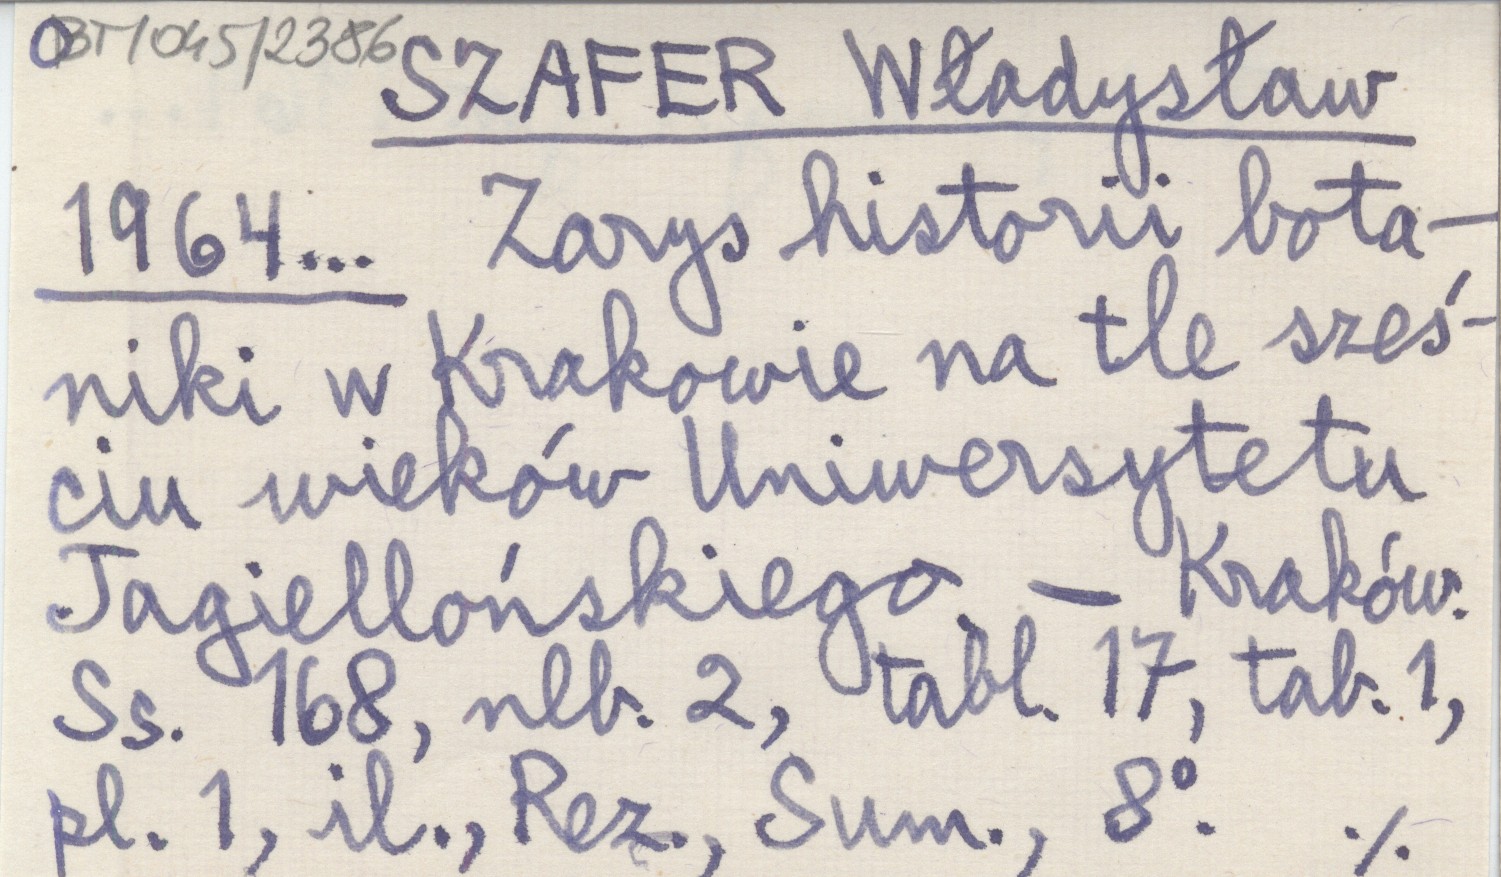 BT/045/2386
SZAFER Władysław
1964... Zarys historii bota-
niki w Krakowie na tle sześ-
ciu wieków Uniwersytetu
Jagiellońskiego. — Kraków.
Ss. 168, nlb. 2, tabl. 17, tab. 1,
pl. 1, il., Rez., Sum., 8°. ./.